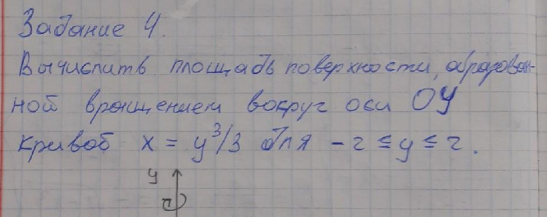 Задание 4.
Вычислить площадь поверхности, образован-
ной вращением вокруг оси ОУ
кривой x = y³/3 для -2 ≤ y ≤ 2.
y